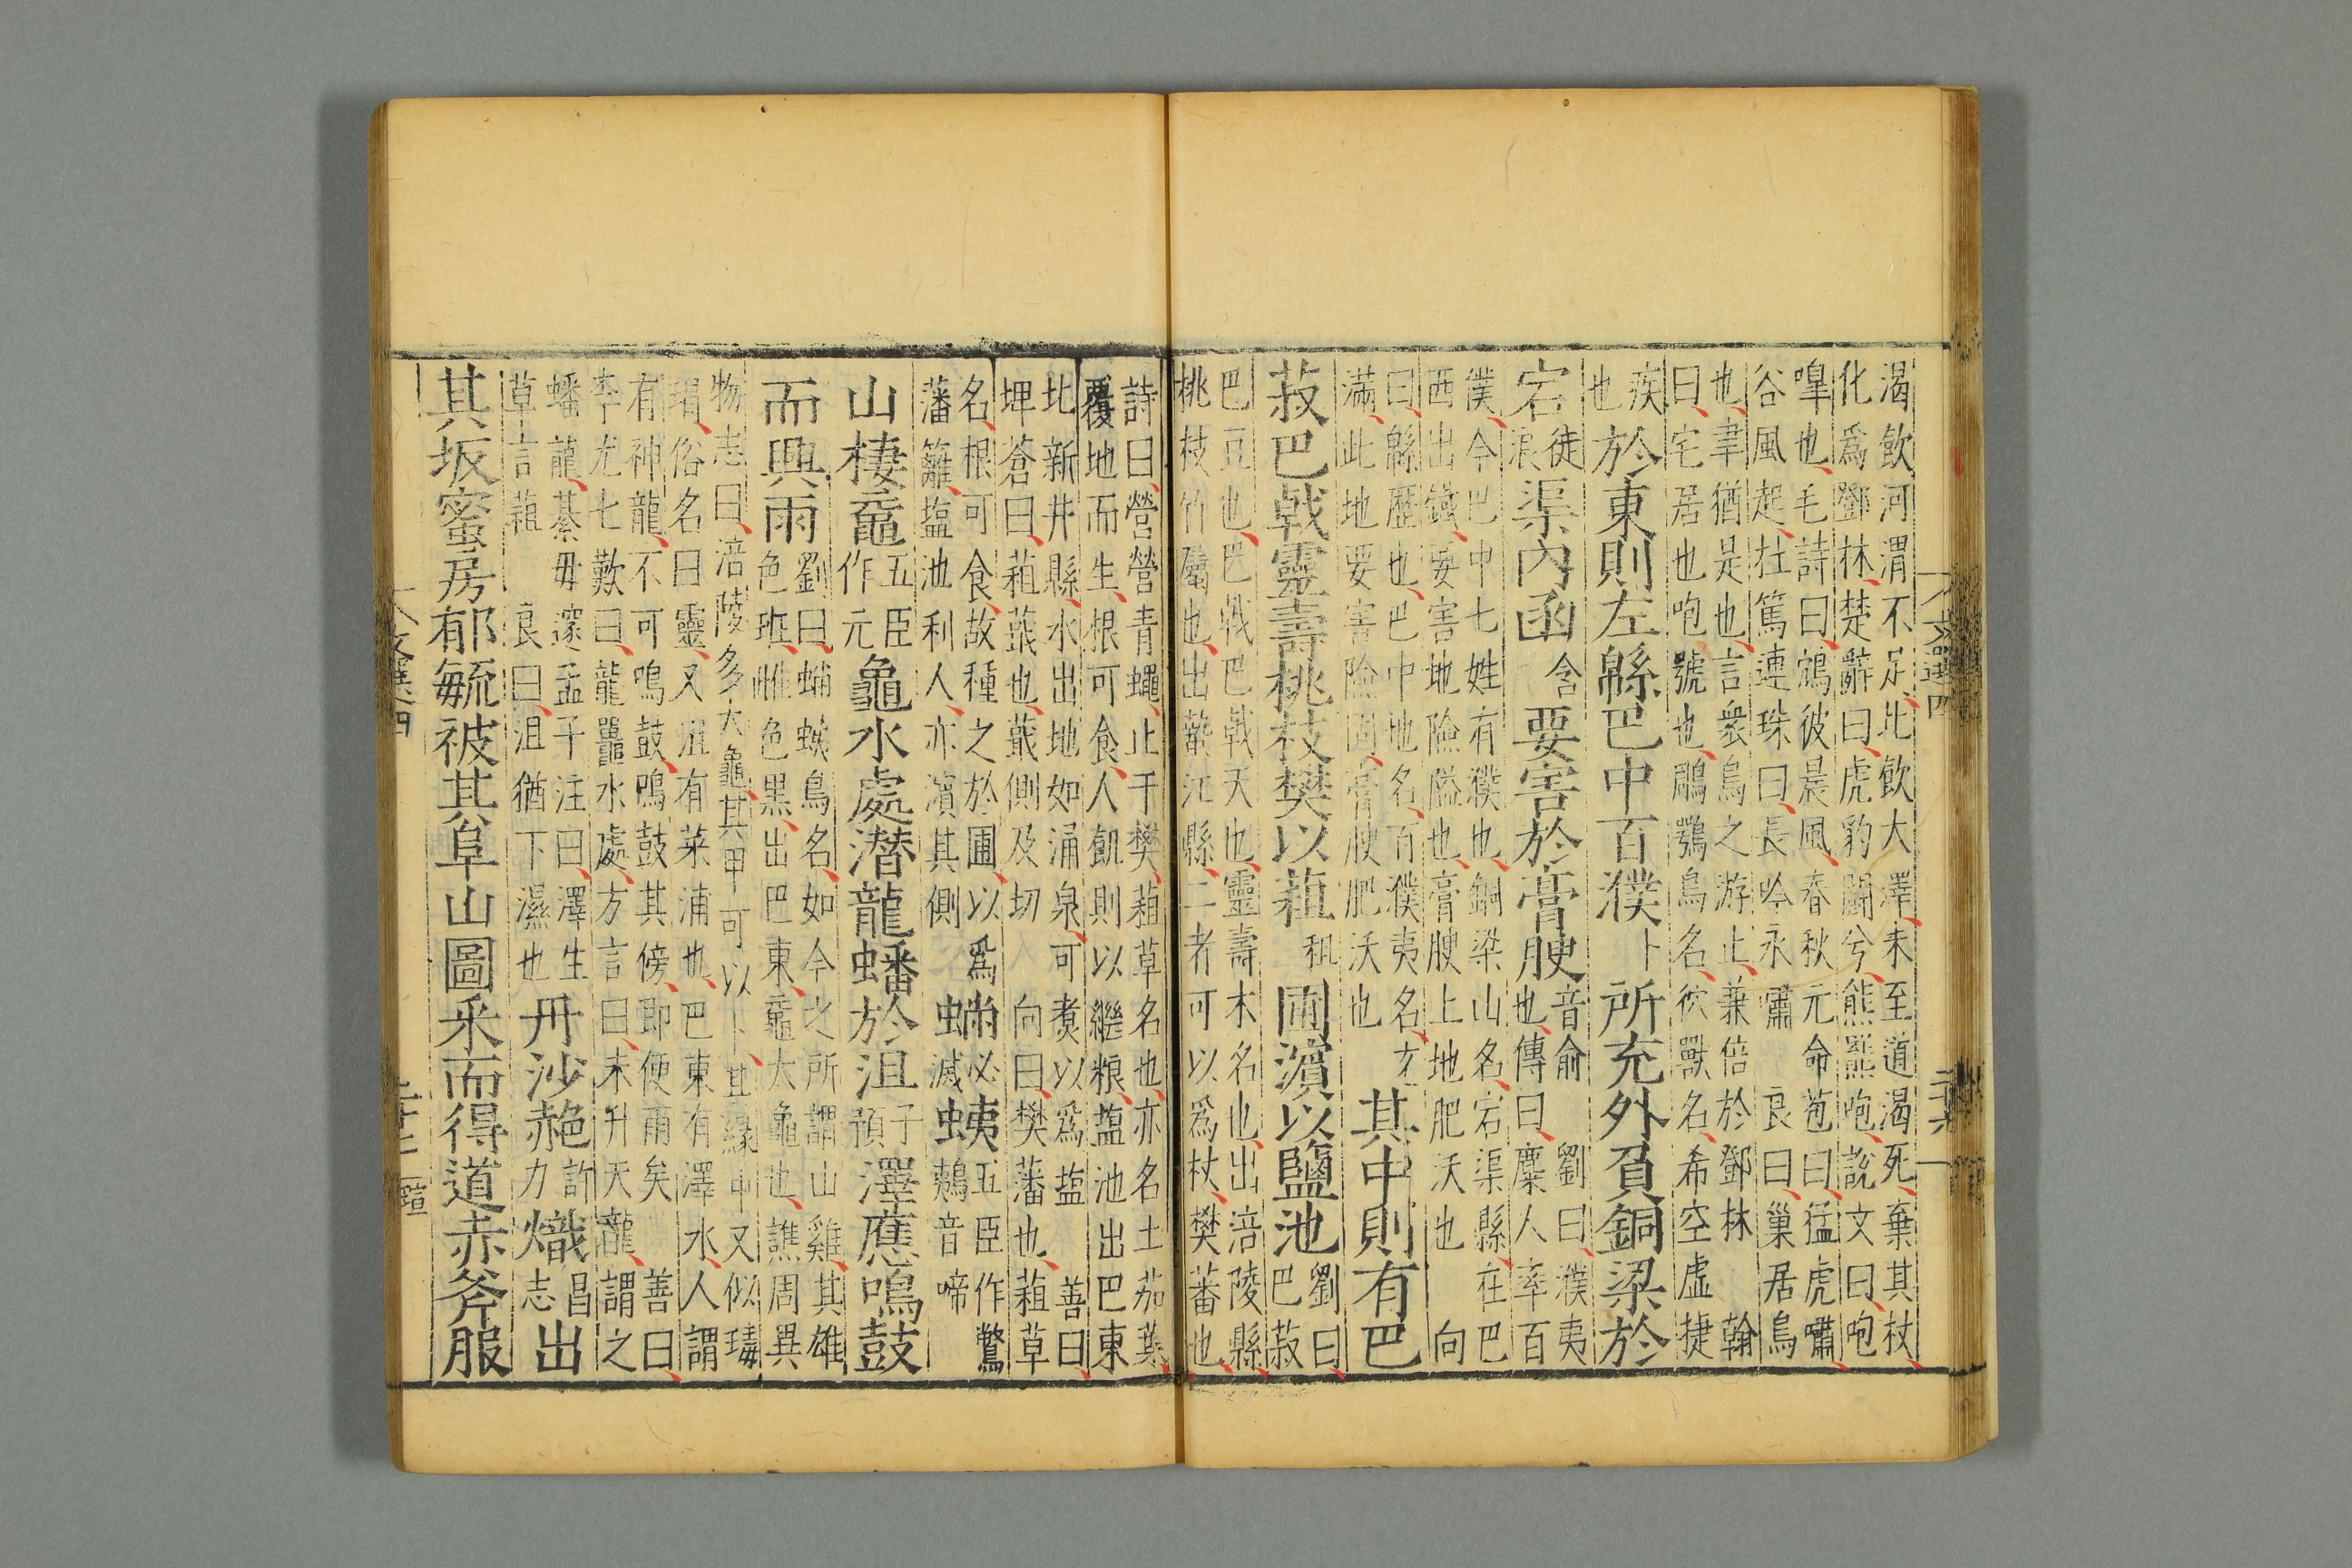 渴飲河渭不足北飲大澤未至道渴死棄其杖
化爲鄧林楚辭曰虎豹鬬兮熊羆咆說文曰咆
嘷也毛詩曰鴥彼晨風春秋元命苞曰猛虎嘯
谷風起杜篤連珠曰長吟永嘯 良曰巢居鳥
也聿猶是也言衆鳥之游止兼倍於鄧林 翰
曰宅居也咆號也鵰鶚鳥名彼獸名希空虛 捷
疾
也於東則左緜巴中百濮卜所充外負銅梁於
宕徒
浪渠內函含要害於膏腴音俞
也傳曰麇人率百
劉曰濮夷
濮今巴中七姓有濮也銅梁山名宕渠縣在巴
西出鐵要害地險隘也膏腴上地肥沃也 向
曰緜歷也巴中地名百濮夷名
滿此地要害險固膏腴肥沃也其中則有巴
菽巴戟靈壽桃枝樊以蒩租圃濵以鹽池劉曰
巴菽
巴豆也巴戟巴戟天也靈壽木名也出涪陵縣
桃枝竹屬也出墊江縣二者可以爲杖樊蕃也
詩曰營營青蠅止于樊蒩草名也亦名土茄葉
覆地而生根可食人飢則以繼粮塩池出巴東
北新井縣水出地如涌泉可煑以爲塩 善曰
埤蒼曰蒩蕺也蕺側及切 向曰樊藩也蒩草
名根可食故種之於圃以爲
藩籬塩池利人亦濵其側蟎必
滅蛦五臣作鷩
鵜音啼
山棲黿五臣
作元龜水處潛龍蟠於沮子
預澤應鳴鼓
而興雨劉曰蟎蛦鳥名如今之所謂山雞其雄
色班雌色黑出巴東黿大龜也譙周異
物志曰涪陵多大龜其甲可以卜其緣中又似瑇
瑁俗名曰靈又沮有萊浦也巴東有澤水人謂
有神龍不可鳴鼓鳴鼓其傍即便雨矣 善曰
李尤七歎曰龍鼉水處方言曰未升天龍謂之
蟠龍綦毋邃孟子注曰澤生
草言蒩 良曰沮猶下濕也丹沙赩許
力熾昌
志出
其坂蜜房郁毓被其阜山圖采而得道赤斧服
文選四
二十六
文選四